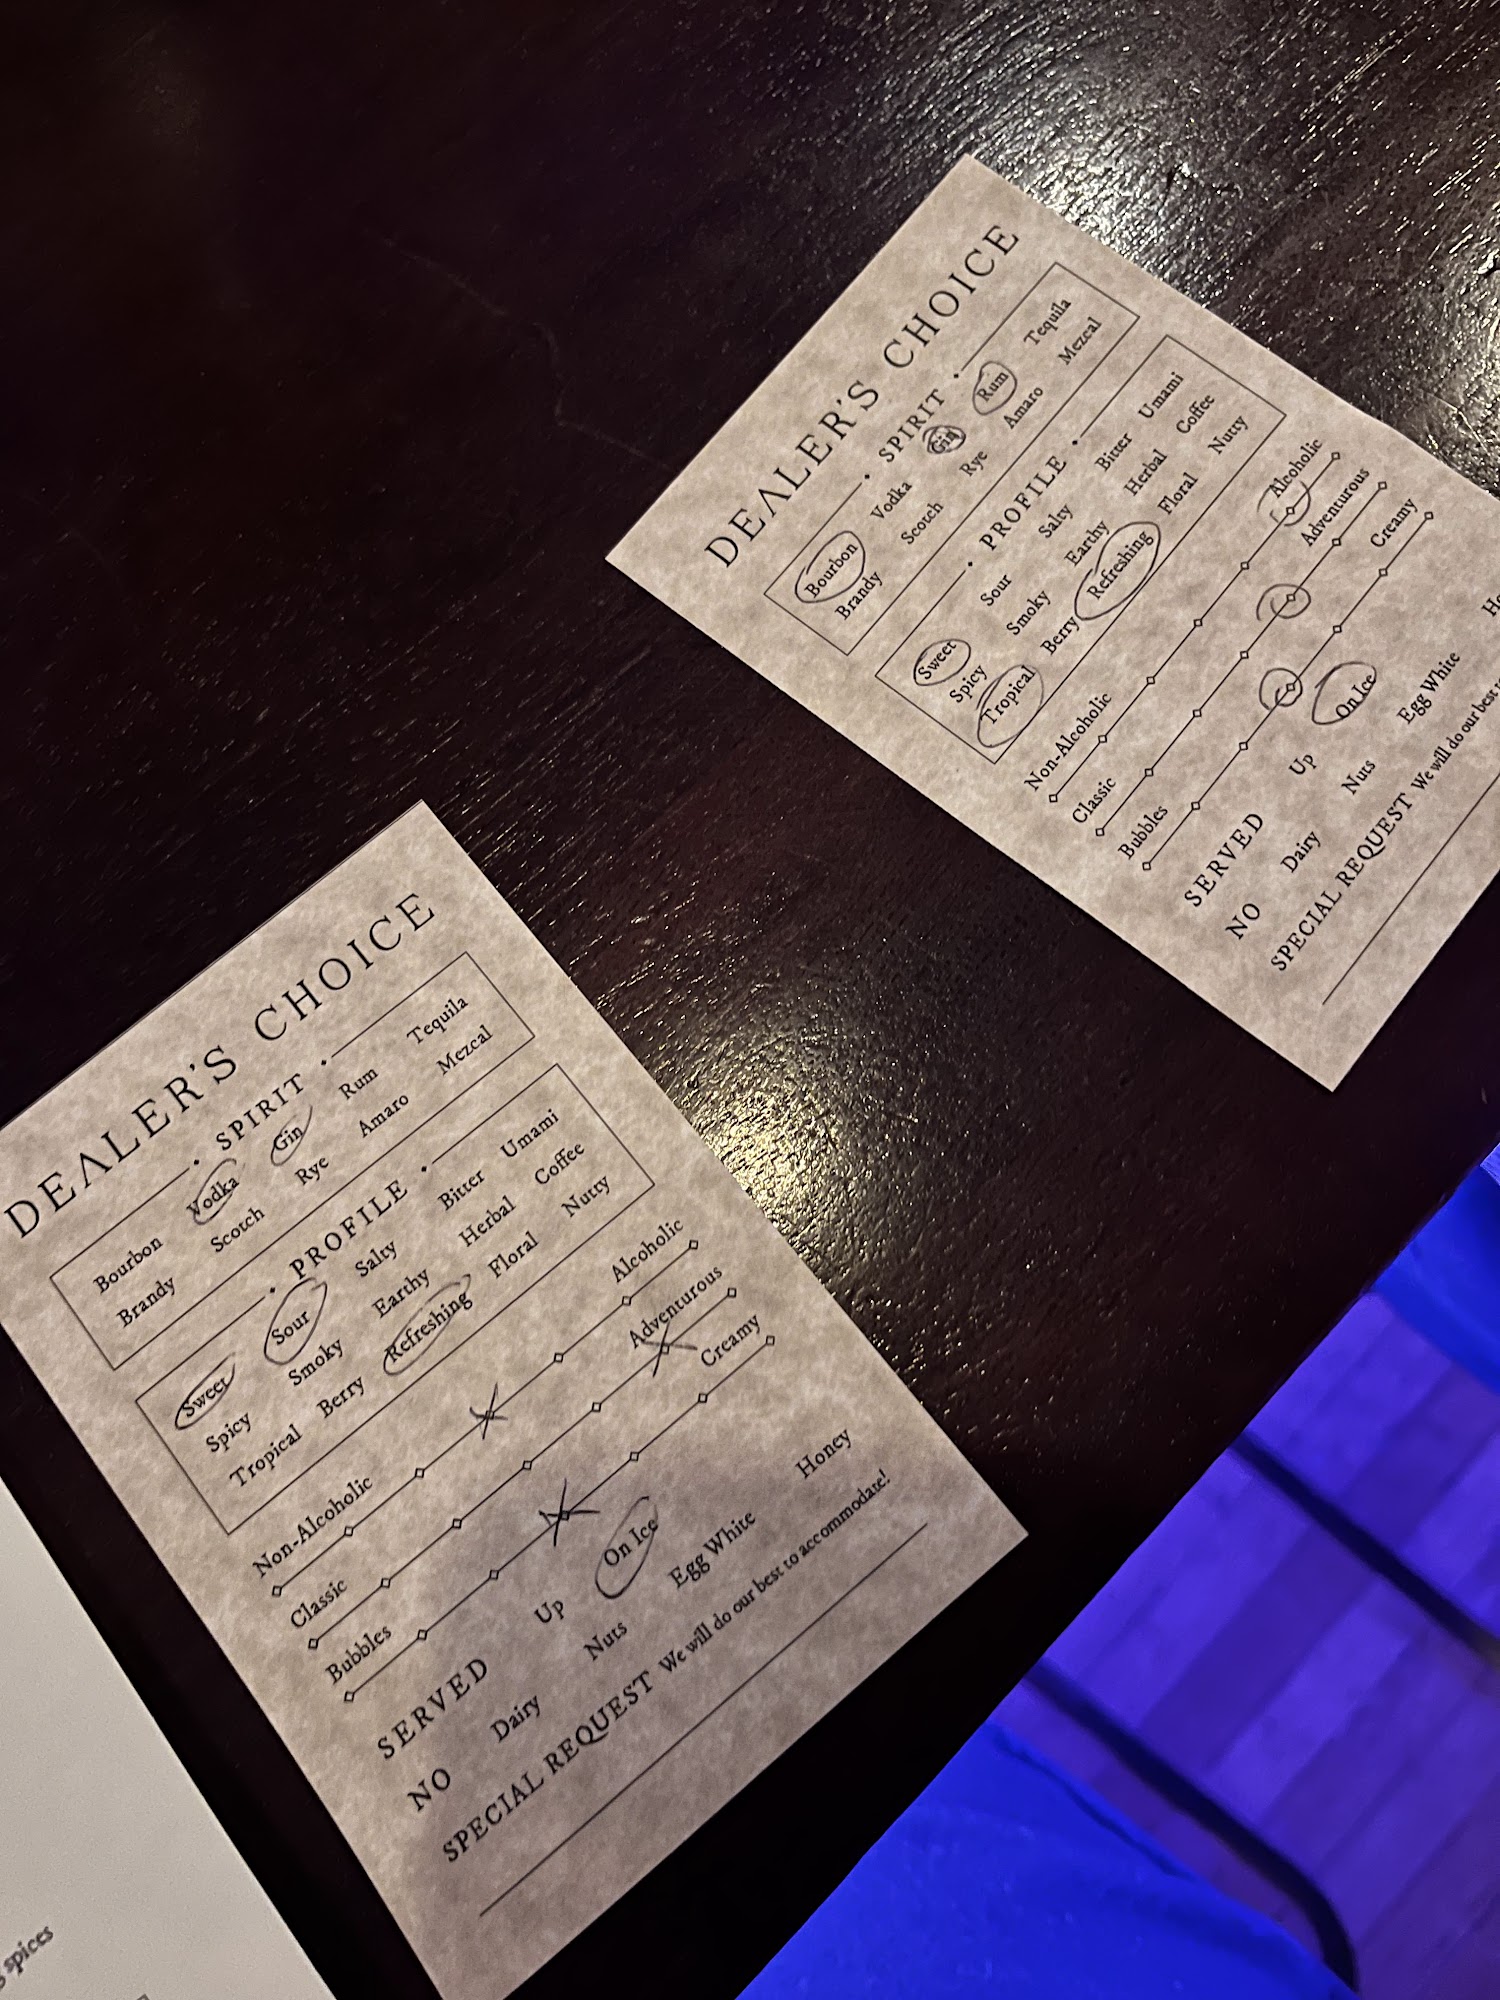 DEALER'S CHOICE
SPIRIT
Bourbon Vodka Gin Rum Tequila
Brandy Scotch Rye Amaro Mezcal
PROFILE
Sweet Sour Salty Bitter Umami
Spicy Smoky Earthy Herbal Coffee
Tropical Berry Refreshing Floral Nutty
Non-Alcoholic Alcoholic
Classic Adventurous
Bubbles Creamy
SERVED Up On Ice
NO Dairy Nuts Egg White Honey
SPECIAL REQUEST We will do our best to accommodate!
DEALER'S CHOICE
SPIRIT
Bourbon Vodka Gin Rum Tequila
Brandy Scotch Rye Amaro Mezcal
PROFILE
Sweet Sour Salty Bitter Umami
Spicy Smoky Earthy Herbal Coffee
Tropical Berry Refreshing Floral Nutty
Non-Alcoholic Alcoholic
Classic Adventurous
Bubbles Creamy
SERVED Up On Ice
NO Dairy Nuts Egg White
SPECIAL REQUEST We will do our best
spices